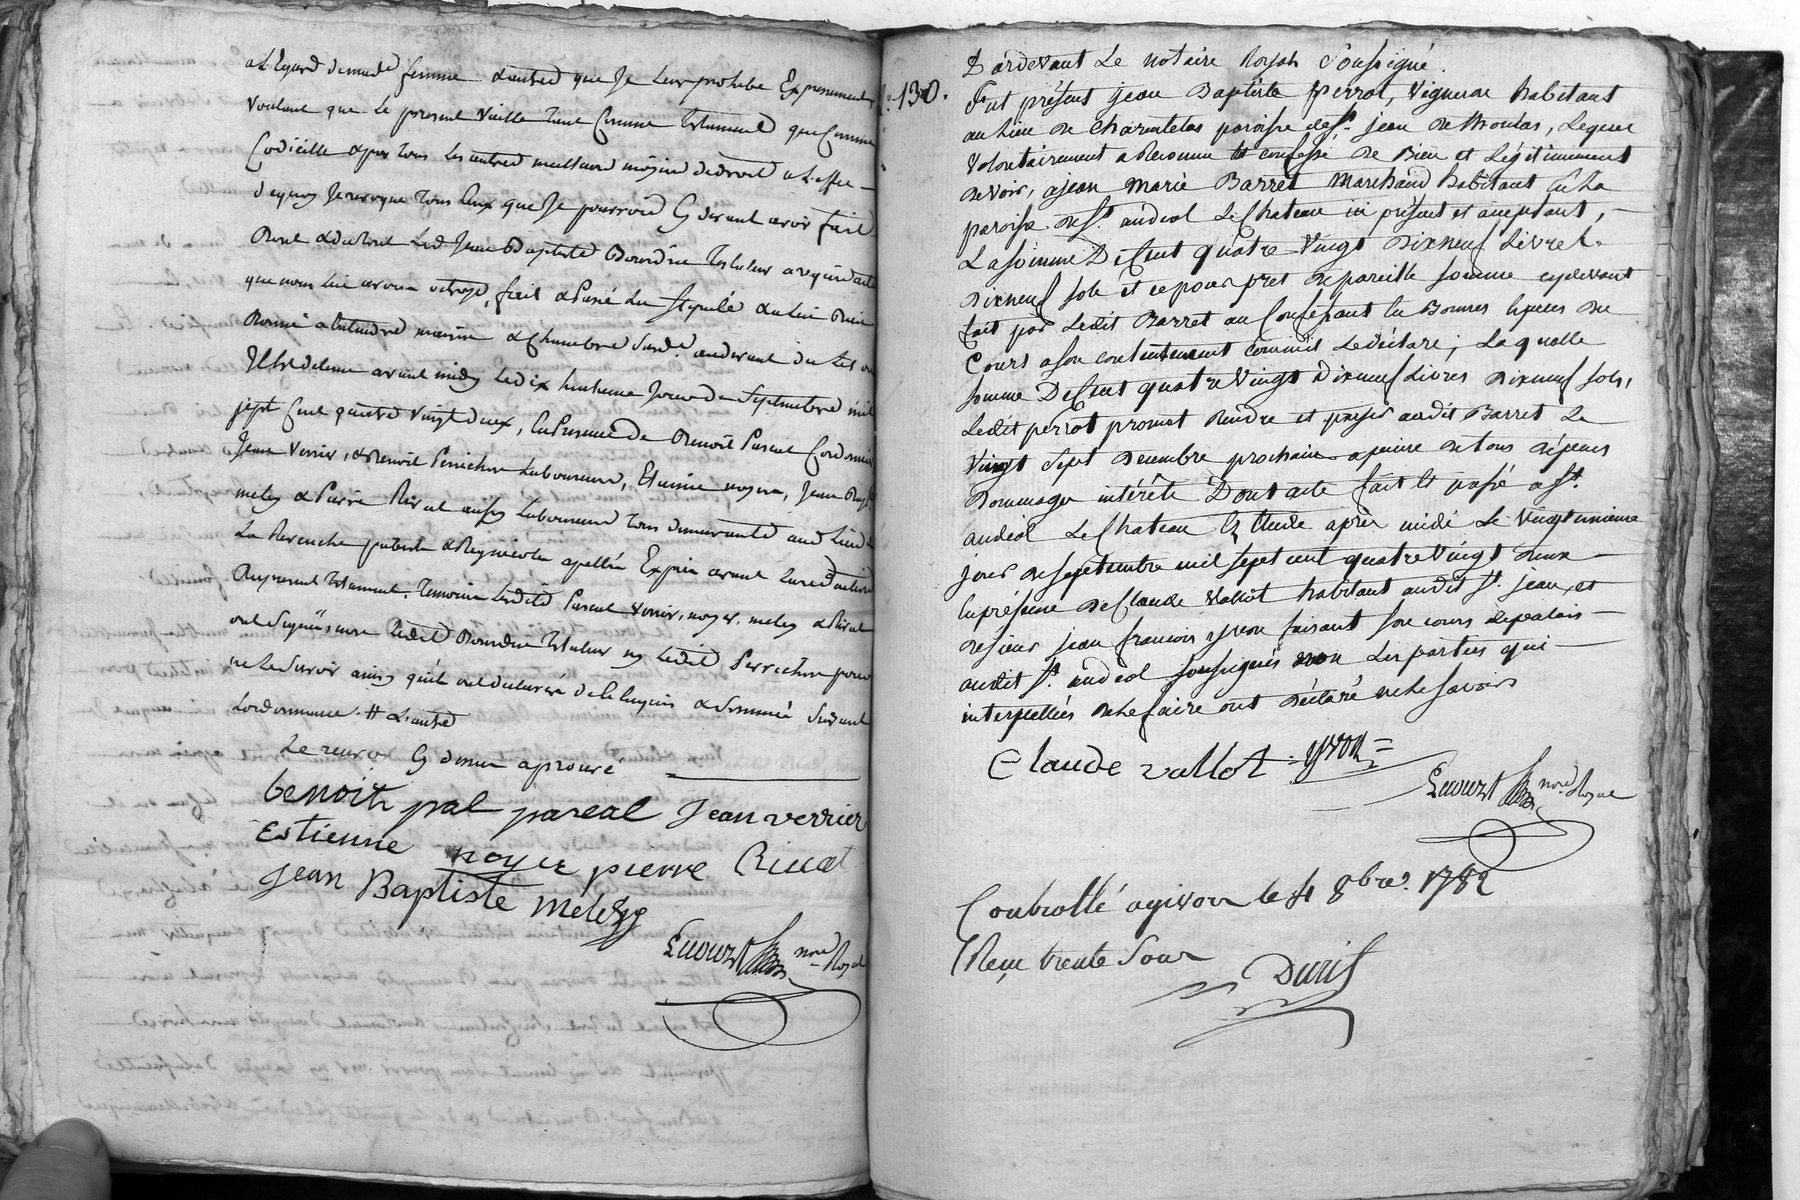 a l'Egard de made femme & autred que Je leur prohibe Expressement
Voulant que Le present Vaille tant Comme testament que Comme
Codicille & par tous les autred meilleurs moyens de droit a L'effet
dequoy Je revoque tous Ceux que Je pourrois Cy devant avoir fait
Dont & du tout Led Jean Baptiste Bourdin testateur a requis acte
que nous lui avons octroyé, fait & Passé
maison & Chambre dud.
avant midy le dix huitieme Jour de Septembre mil
sept Cent quatre Vingt deux, En Presence de Benoît Pascal Cordonnier
Jean Verrier, & Benoît Perrichon Laboureurs, Etienne noyer, Jean Bapt
meley & Pierre Rivat aussy Laboureurs tous demeurants aud Lieu
appellés Exprès avant
du present testament. temoins lesdits Pascal Verrier, noyer, meley & Rivat
ont Signé, non ledit Bourdin testateur ny ledit Perrichon pour
ne le Savoir ainsy qu'ils ont declaré de ce Enquis & Sommés Suivant
L'ordonnance. # & autred
Le renvoy Cy dessus aprouvé
benoit pal parcal Jean verrier
Estienne noyer pierre Rivat
Jean Baptiste Meley
nore Royal
130.
Pardevant Le notaire Royal Soussigné.
Fut présent jean Baptiste perrot, Vigneron habitant
au Lieu de Charatelas paroisse de St. jean de Thoulas, Lequel
Volontairement a Reconnu et confessé de Bien et Légitimement
devoir, a jean Marie Barret Marchand habitant En La
paroisse de St. andeol Le Chateau ici présent et aceptant,
La Somme De Cent quatre Vingt Dixneuf Livres
dixneuf sols et ce pour pret de pareille somme cydevant
fait par Ledit Barret au Confessant En Bonnes Espéces de
Cours a son contentement comm'il Le déclare; Laquelle
somme De Cent quatre Vingt Dixneuf Livres Dixneuf sols,
Ledit perrot promet Rendre et payer audit Barret Le
Vingt Sept decembre prochain a peine de tous dépens
Dommages intérêts Dont acte fait et passé a St.
andeol Le Chateau Es Etude après midi Le Vingtunieme
jour de septembre mil sept cent quatre Vingt deux
En présence De Claude Vallot habitant audit St. jean, et
de sieur jean francois yvon faisant son cours de palais
audit St. andeol soussignés non Les parties qui
interpellées de Le faire ont déclaré ne le savoir
Claude vallot yvon
nore Royal
Controllé a givors le 4 8bre. 1782
Reçu trente Sous
Duril